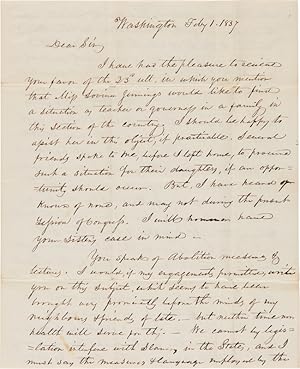 Washington Feby 1. 1837
Dear Sir,
I have had the pleasure to receive
your favor of the 23d ult, in which you mention
that Miss Lovina Jennings would like to find
a situation as teacher or governess in a family in
this section of the country. I should be happy to
assist her in this object, if practicable. Several
friends spoke to me, before I left home, to procure
such a situation for their daughters, if an oppor-
tunity should occur. But, I have heard or
known of none, and may not during the present
Session of Congress. I will however name
your Sisters case in mind —
You speak of Abolition measures &
lectures. I would, if my engagements permitted, write
you on this subject, which seems to have been
brought very prominently before the minds of my
neighbours & friends of late, — but neither time nor
health will serve for this; — We cannot by legis-
lation interfere with Slavery in the States, and I
must say the measures & language employed by the